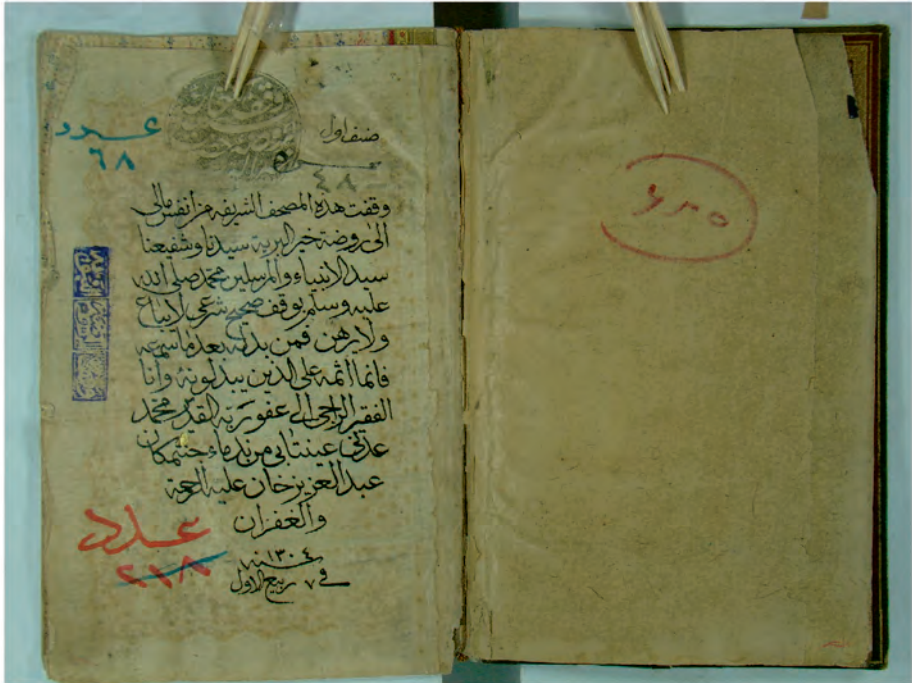 صنف اول
عدد
٦٨
٤٨
وقفت هذه المصحف الشريفه من انفس مالى
الى روضة خير البرية سيدنا وشفيعنا
سيد الانبياء والمرسلين محمد صلى الله
عليه وسلم بوقف صحيح شرعى لا يباع
ولا يرهن فمن بدله بعد ما سمعه
فانما اثمه على الذين يبدلونه وانا
الفقر الراجى الى عفو ربه القدير محمد
عينتابى من ندماء جنتمكان
عبد العزيز خان عليه الرحمة
والغفران
عدد
سنه ١٣٠٤
فى ٧ ربيع الاول